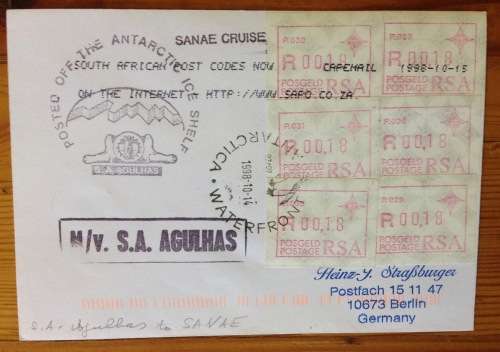 POSTED OFF THE ANTARCTIC ICE SHELF
S.A. AGULHAS
SANAE CRUISE
SOUTH AFRICAN POST CODES NOW CAPEMAIL 1998-10-15
ON THE INTERNET: HTTP://WWW.SAPO.CO.ZA
P.030
R 00,18
POSGELD
POSTAGE RSA
R 00,18
POSGELD
POSTAGE RSA
P.031
R 00,18
POSGELD
POSTAGE RSA
R 00,18
POSGELD
POSTAGE RSA
R 00,18
POSGELD
POSTAGE RSA
P.029
R 00,18
POSGELD
POSTAGE RSA
ANTARCTICA • WATERFRONT
1998-10-14
M/v. S.A. AGULHAS
Heinz-J. Straßburger
Postfach 15 11 47
10673 Berlin
Germany
S.A. Agulhas to SANAE